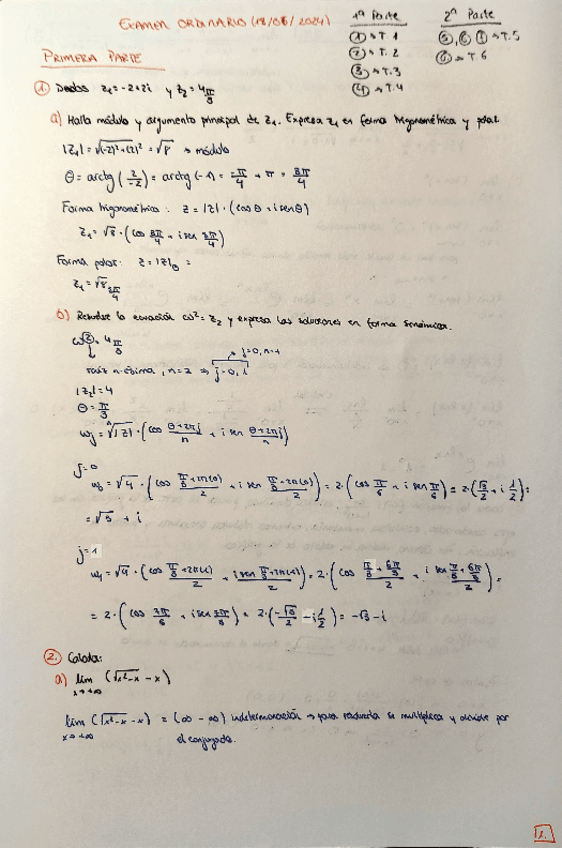 EXAMEN ORDINARIO (18/06/2024)
1ª Parte
① → T.1
② → T.2
③ → T.3
④ → T.4
2ª Parte
⑤, ⑥ ⑦ → T.5
⑧ → T.6
PRIMERA PARTE
1. Dados z₁ = -2+2i y z₂ = 4_{π/3}
a) Halla módulo y argumento principal de z₁. Expresa z₁ en forma trigonométrica y polar.
|z₁| = √((-2)²+(2)²) = √8 → módulo
θ = arctg (2/-2) = arctg (-1) = -π/4 + π = 3π/4
Forma trigonométrica: z = |z| · (cos θ + i sen θ)
z₁ = √8 · (cos 3π/4 + i sen 3π/4)
Forma polar: z = |z|_θ =
z₁ = √8_{3π/4}
b) Resuelve la ecuación ω² = z₂ y expresa las soluciones en forma binómica.
ω² = 4_{π/3}
j=0, n-1
raíz n-ésima, n=2 ⇒ j=0, 1
|z₂| = 4
θ = π/3
ωj = ⁿ√|z| · (cos (θ+2πj)/n + i sen (θ+2πj)/n)
j=0
ω₀ = √4 · (cos (π/3+2π(0))/2 + i sen (π/3+2π(0))/2) = 2·(cos π/6 + i sen π/6) = 2·(√3/2 + i 1/2) =
= √3 + i
j=1
ω₁ = √4 · (cos (π/3+2π(1))/2 + i sen (π/3+2π(1))/2) = 2·(cos (π/3+6π/3)/2 + i sen (π/3+6π/3)/2) =
= 2·(cos 7π/6 + i sen 7π/6) = 2·(-√3/2 - i 1/2) = -√3 - i
2. Calcula:
a) lím (√(x²-x) - x)
x→+∞
lím (√(x²-x) - x) = (∞ - ∞) indeterminación → para resolverla se multiplica y divide por
x→+∞ el conjugado.
1.